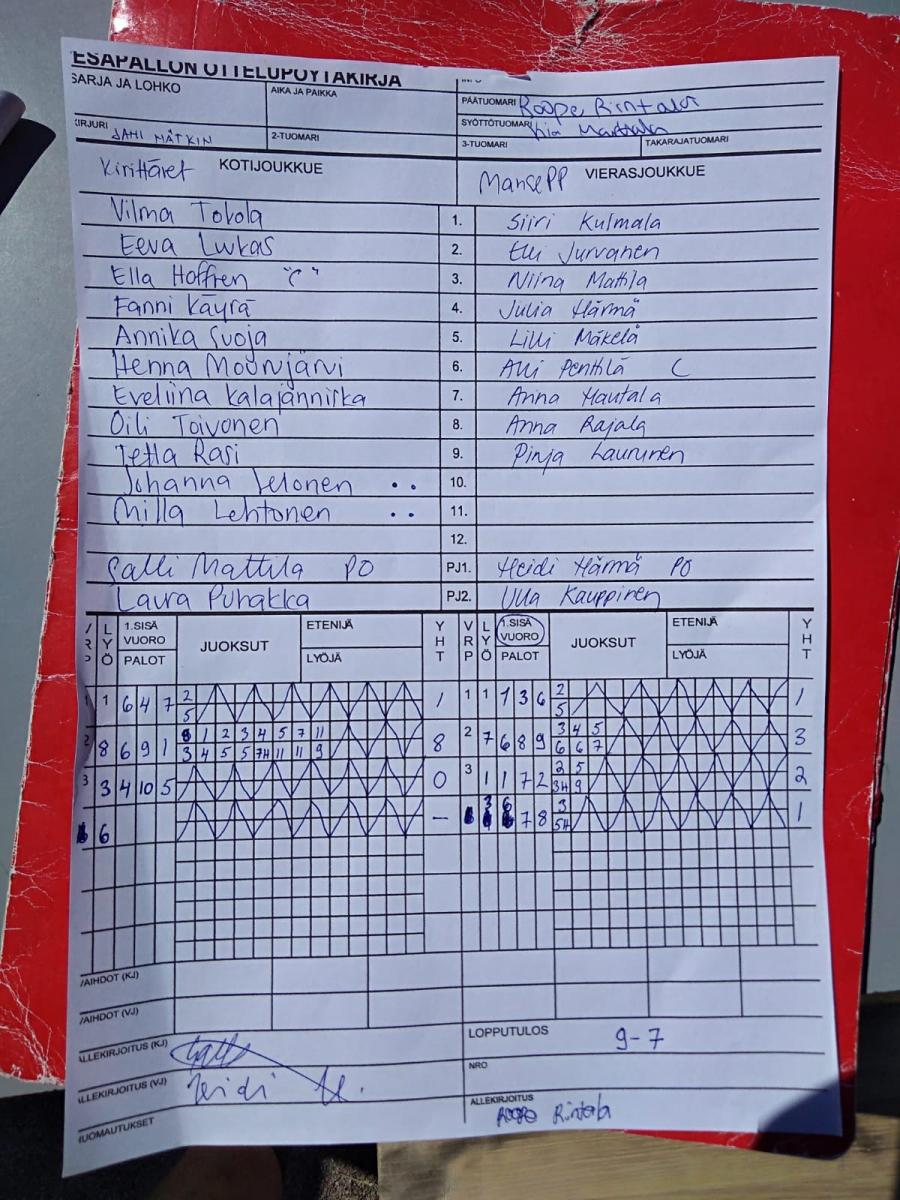 ESÄPALLON OTTELUPÖYTÄKIRJA
SARJA JA LOHKO
AIKA JA PAIKKA
PÄÄTUOMARI Roope Rintala
SYÖTTÖTUOMARI
KIRJURI JANI MÄTKIN
2-TUOMARI
3-TUOMARI
TAKARAJATUOMARI
Kirittäret KOTIJOUKKUE
MansePP VIERASJOUKKUE
Vilma Tokola 1. Siiri Kulmala
Eeva Lukas 2. Elli Jurvanen
Ella Hoffren "C" 3. Niina Mattila
Fanni Käyrä 4. Julia Härmä
Annika Suoja 5. Lilli Mäkelä
Henna 6. Penttilä C
Eveliina Kalajanniska 7. Anna Hautala
Oili Toivonen 8. Anna Rajala
Jetta Rasi 9. Pinja Laurunen
Johanna Jelonen .. 10.
Milla Lehtonen .. 11.
12.
Salli Mattila PO PJ1. Heidi Härmä PO
Laura Puhakka PJ2. Ulla Kauppinen
VRP LYÖ 1.SISÄ VUORO PALOT JUOKSUT ETENIJÄ LYÖJÄ YHT VRP LYÖ 1.SISÄ VUORO PALOT JUOKSUT ETENIJÄ LYÖJÄ YHT
1 1 6 4 7 2 1 1 1 1 3 6 2 1
5 5
2 8 6 9 1 1 2 3 4 5 7 11 8 2 7 6 8 9 3 4 5 3
3 4 5 5 7H 11 11 9 6 6 7
3 3 4 10 5 0 3 1 1 7 2 2 5 2
3H 9
6 – 3 6 7 8 3 1
5H
VAIHDOT (KJ)
VAIHDOT (VJ)
ALLEKIRJOITUS (KJ)
LOPPUTULOS 9-7
ALLEKIRJOITUS (VJ) Heidi H.
NRO
HUOMAUTUKSET
ALLEKIRJOITUS Roope Rintala